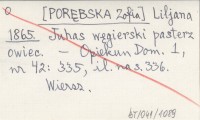 [PORĘBSKA Zofia] Liljana
1865. Juhas węgierski pasterz
owiec. — Opiekun Dom. 1,
nr 42: 335, il. na s. 336.
Wiersz.